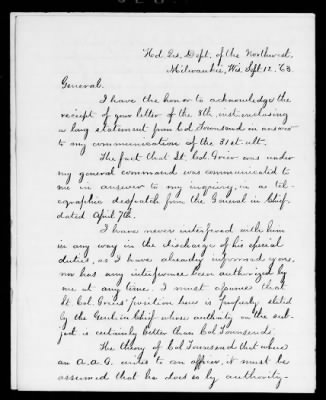 Hd. Qrs. Dept. of the Northwest.
Milwaukie, Wis. Sept. 12. '63.
General.
I have the honor to acknowledge the
receipt of your letter of the 8th inst. inclosing
a long statement from Col. Townsend in answer
to my communication of the 31st ult.
The fact that Lt. Col. Grier was under
my general command was communicated to
me in answer to my inquiry, in a tel-
egraphic despatch from the General in Chief
dated April 7th.
I have never interfered with him
in any way in the discharge of his special
duties, as I have already informed you,
nor has any interference been authorized by
me at any time. I must assume that
Lt. Col. Grier's position here is properly stated
by the Genl. in Chief whose authority on the sub-
ject is certainly better than Col. Townsend's.
The theory of Col. Townsend that when
an A.A.G. writes to an officer, it must be
assumed that he does so by authority-